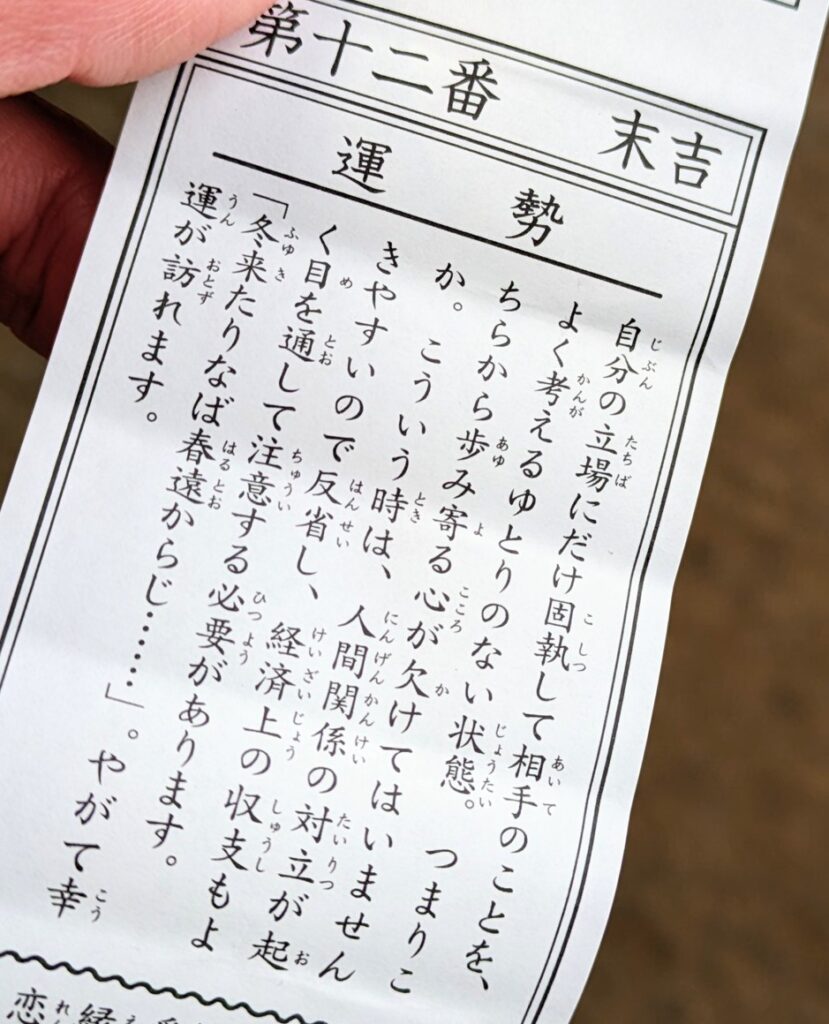 第十二番 末吉
運勢
自分の立場にだけ固執して相手のことを、
よく考えるゆとりのない状態。つまりこ
ちらから歩み寄る心が欠けてはいません
か。こういう時は、人間関係の対立が起
きやすいので反省し、経済上の収支もよ
く目を通して注意する必要があります。
「冬来たりなば春遠からじ……」。やがて幸
運が訪れます。